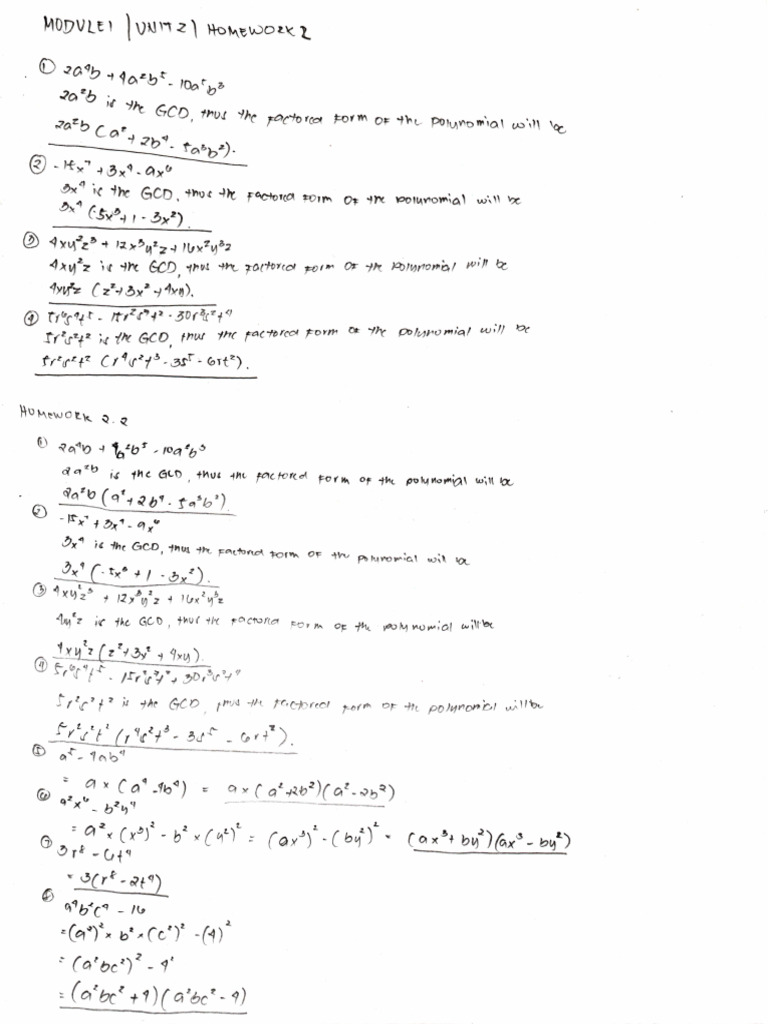 MODULE1 / UNIT2 / HOMEWORK 2
① 2a⁴b + 4a²b⁵ - 10a⁵b³
2a²b is the GCD, thus the factored form of the polynomial will be
2a²b (a² + 2b⁴ - 5a³b²).
② -15x⁷ + 3x⁴ - 9x⁶
3x⁴ is the GCD, thus the factored form of the polynomial will be
3x⁴ (-5x³ + 1 - 3x²).
③ 4xy²z³ + 12x³y²z + 16x²y³z
4xy²z is the GCD, thus the factored form of the polynomial will be
4xy²z (z² + 3x² + 4xy).
④ 5r⁶s⁴t⁵ - 15r²s⁷t² - 30r³s²t⁴
5r²s²t² is the GCD, thus the factored form of the polynomial will be
5r²s²t² (r⁴s²t³ - 3s⁵ - 6rt²).
HOMEWORK 2.2
① 2a⁴b + 4a²b⁵ - 10a⁵b³
2a²b is the GCD, thus the factored form of the polynomial will be
2a²b (a² + 2b⁴ - 5a³b²).
② -15x⁷ + 3x⁴ - 9x⁶
3x⁴ is the GCD, thus the factored form of the polynomial will be
3x⁴ (-5x³ + 1 - 3x²).
③ 4xy²z³ + 12x³y²z + 16x²y³z
4y²z is the GCD, thus the factored form of the polynomial will be
4xy²z (z² + 3x² + 4xy).
④ 5r⁶s⁴t⁵ - 15r²s⁷t² + 30r³s²t⁴
5r²s²t² is the GCD, thus the factored form of the polynomial will be
5r²s²t² (r⁴s²t³ - 3s⁵ - 6rt²).
⑤ a⁵ - 4ab⁴
= a × (a⁴ - 4b⁴) = a × (a² + 2b²)(a² - 2b²)
⑥ a²x⁶ - b²y⁴
= a² × (x³)² - b² × (y²)² = (ax³)² - (by²)² = (ax³ + by²)(ax³ - by²)
⑦ 3r⁸ - 6t⁴
= 3(r⁸ - 2t⁴)
⑧ a⁴b²c⁴ - 16
= (a²)² × b² × (c²)² - (4)²
= (a²bc²)² - 4²
= (a²bc² + 4)(a²bc² - 4)